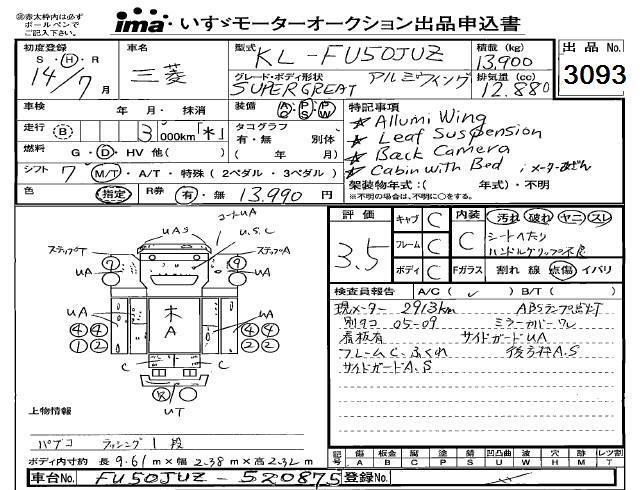 ※赤太枠内は必ず
ボールペンで
ご記入下さい。
ima いすゞモーターオークション出品申込書
初度登録 車名 型式 KL-FU50JUZ 積載 (kg) 13,900 出品 No.
S・H・R 三菱 グレード・ボディ形状 アルミウイング 排気量 (cc) 3093
14/7 月 SUPERGREAT 12.880
車検 年 月・抹消 装備 AC PS PW 特記事項
走行 B 3 000km「水」 タコグラフ 有・無 別体 ☆Allumi Wing
☆Leaf Suspension
燃料 G・D・HV 他( ) ( 年 ) ☆Back Camera
シフト 7 M/T・A/T・特殊(2ペダル・3ペダル) ☆Cabin with Bed
色 指定 R券 有・無 13,990 円 架装物年式:( 年式)・不明
※不明の場合は、不明に○をする。
評価 キャブ C 内装 汚れ 破れ ヤニ スレ
3.5 フレーム C C シートへたり
ハンドルグリップ不良
ボディ C Fガラス 割れ 線 点傷 イバリ
検査員報告 A/C( ✓ ) B/T( )
現メーター 2913km ABSランプ点灯
別タコ 05-09 ミラーカバーワレ
看板有 サイドガードUA
フレームC、ふくれ 後方枠A.S
サイドガードA.S
コートUA
UAS U.S.C
ステップT ステップA
UA 7 9 UA
UA 木 A UA
4 4 4 4
1 2 2 2
C C
UT
上物情報
パブコ ラッシング1段
ボディ内寸約 長 9.61 m × 幅 2.38 m × 高 2.32 m
記号 傷 A 板金 B 腐 C 塗 P 錆 S 凹凸曲 U 波 W 穴 H 跡 M レツ割 T
車台No. FU50JUZ-520875 登録No.